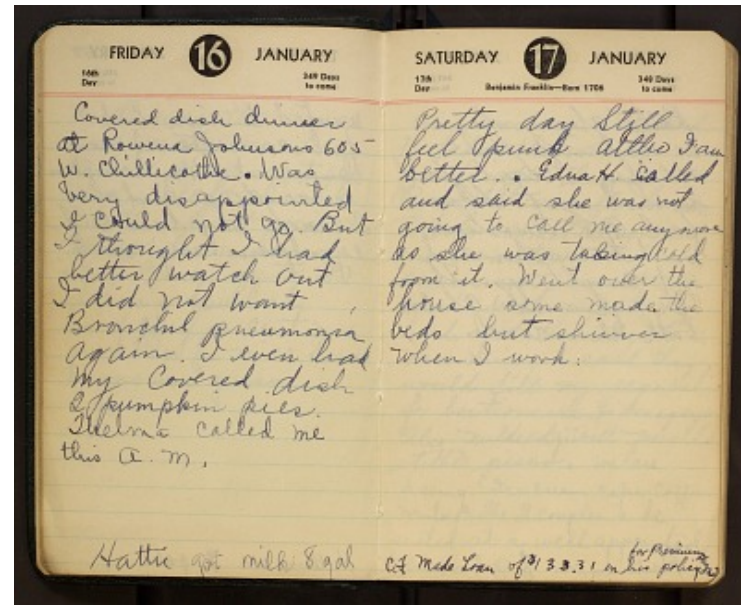 FRIDAY 16 JANUARY
16th Day
349 Days to come
Covered dish dinner
at Rowena Johnsons 605
W. Chillicothe. Was
very disappointed
I could not go. But
I thought I had
better watch out
I did not want
Bronchil pneumonia
again. I even had
my Covered dish
2 pumpkin pies.
Thelma called me
this A.M.
Hattie got milk 8 gal
SATURDAY 17 JANUARY
17th Day
Benjamin Franklin—Born 1706
348 Days to come
Pretty day Still
feel punk altho I am
better. Edna H. called
and said she was not
going to call me anymore
as she was taking cold
from it. Went over the
house some made the
beds but shiver
when I work.
for Premium
Made Loan of $133.31 on his policy